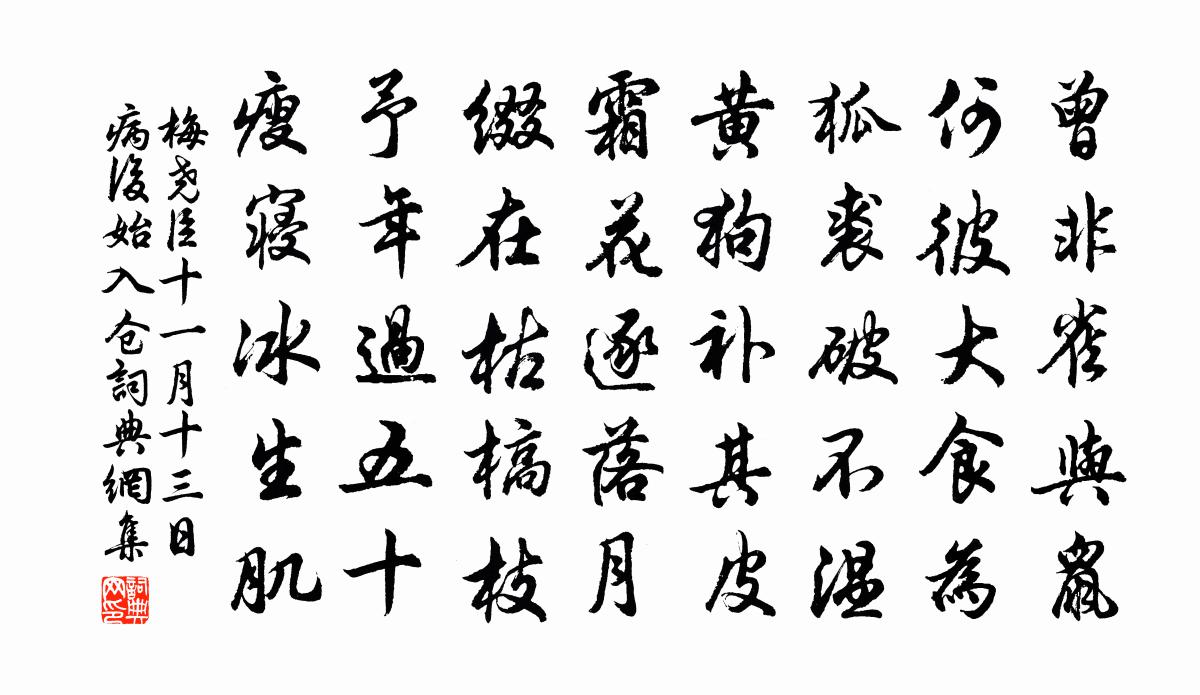 曾非雀與鼠
何彼大食為
狐裘破不温
黄狗补其皮
霜花逐落月
綴在枯槁枝
予年過五十
瘦寝冰生肌
梅尧臣十一月十三日
病後始入仓詞典網集
詞典
网印